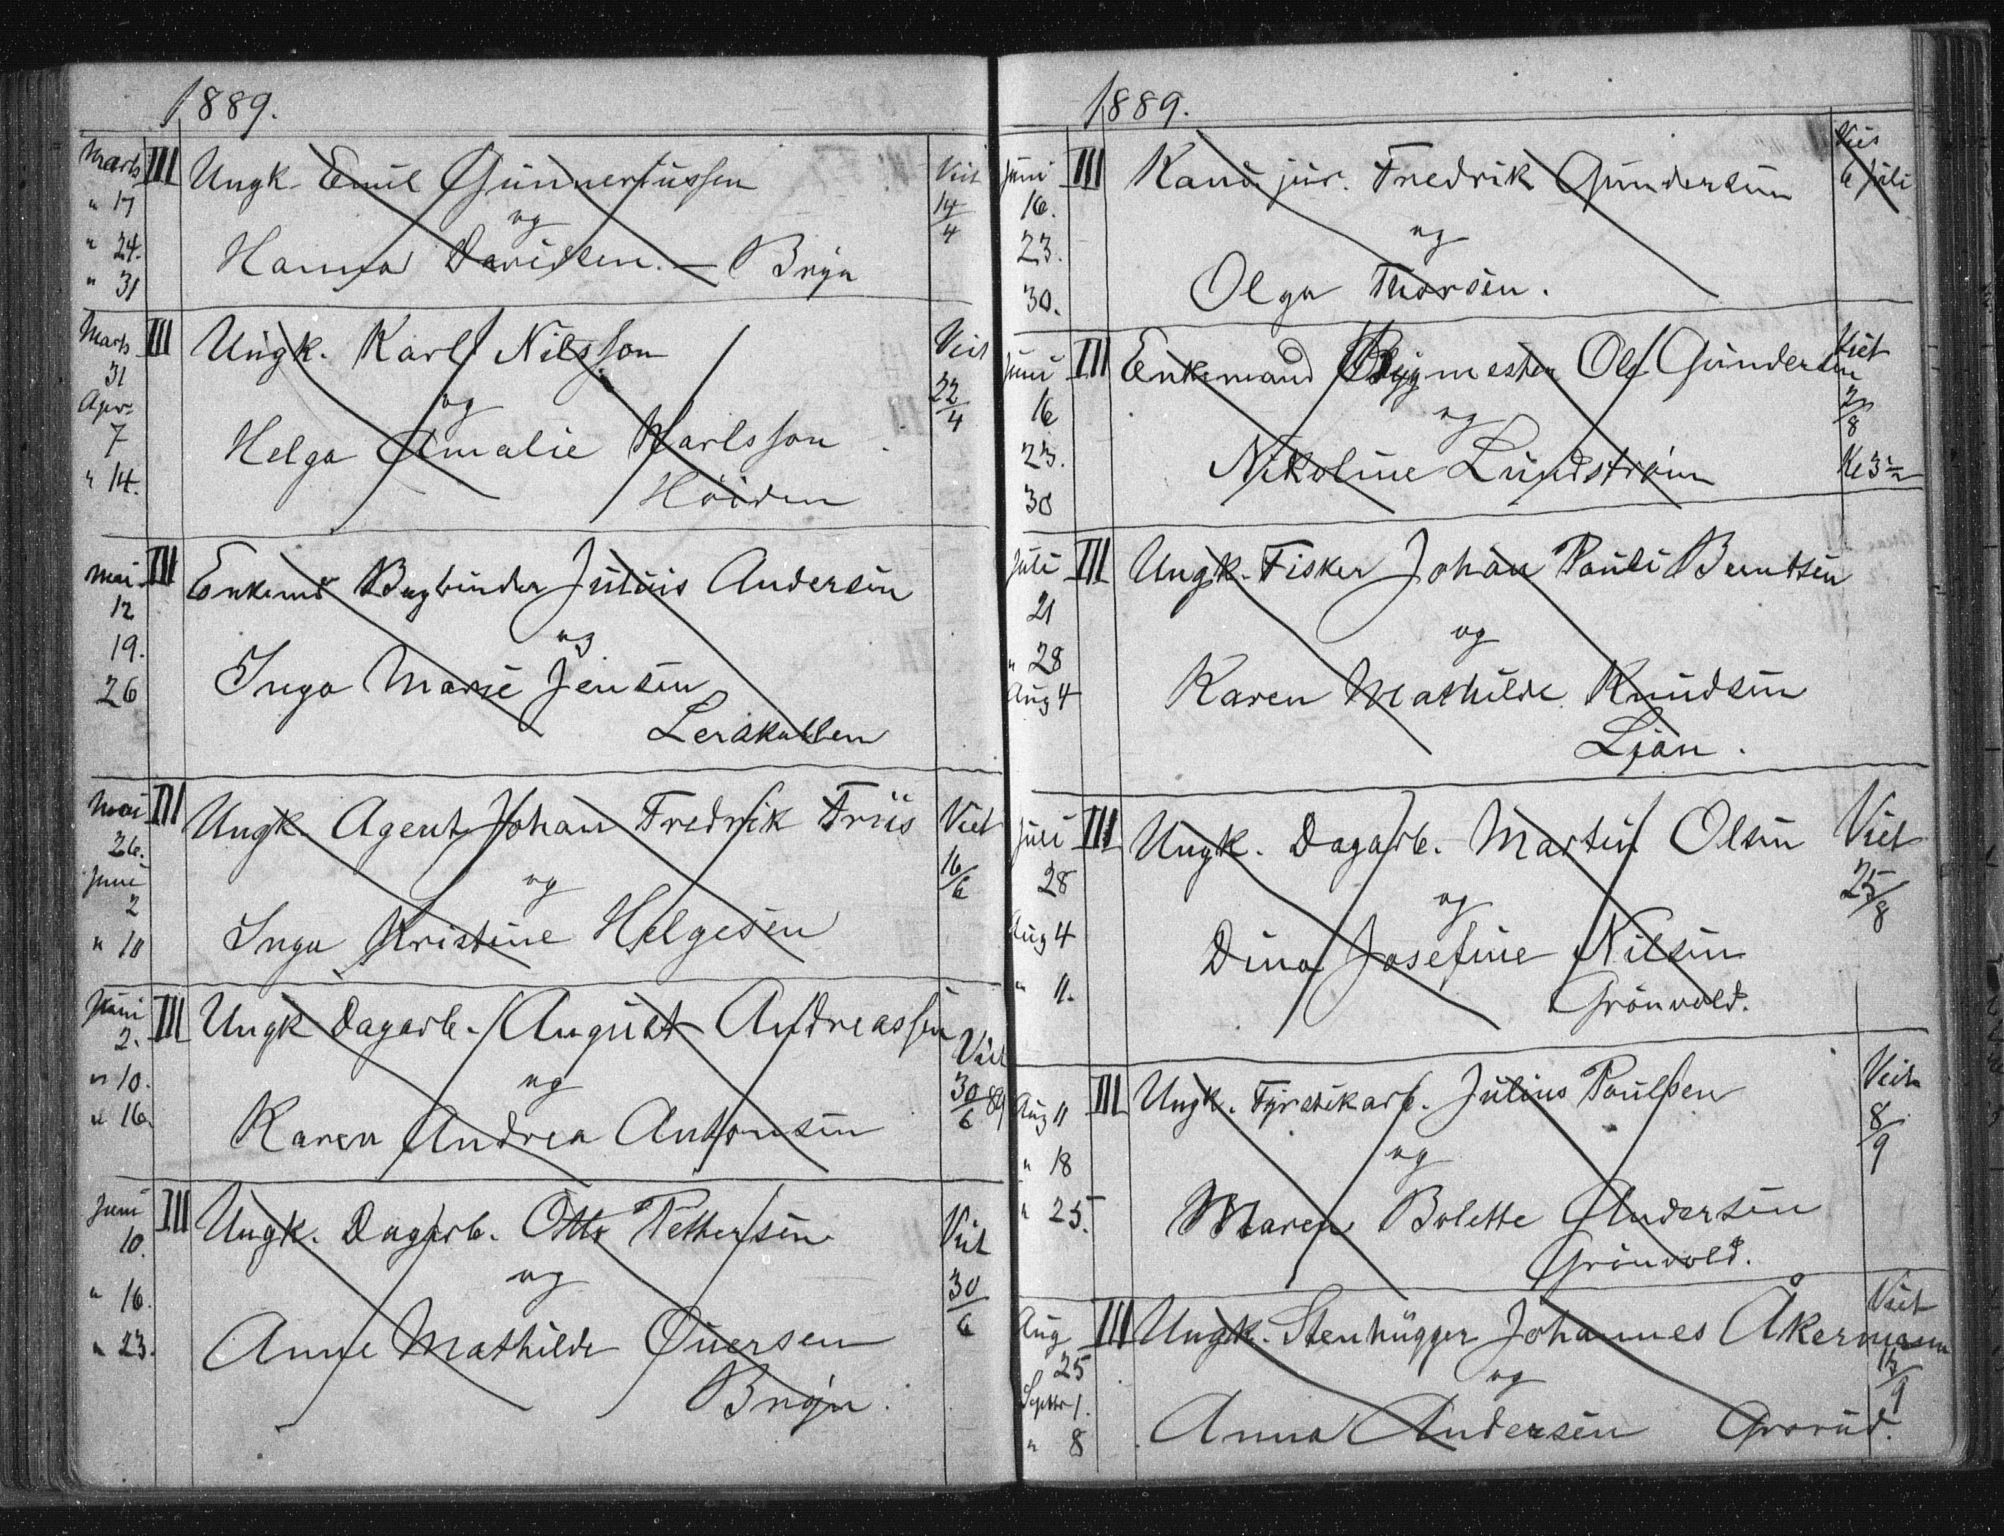 1889.
Marts III Ungk. Emil Gunneriussen Viet
" 17 og 14/4
" 24. Hanna Davidsen. — Bryn
" 31
Marts III Ungk. Karl Nilsson Viet
31 og 22/4
Apr. Helga Amalie Karlsson
7 Höiden
" 14.
Mai III Enkemd Bogbinder Julius Andersen
12 og
19. Inga Marie Jensen
26 Lerskallen
Mai III Ungk. Agent Johan Fredrik Friis Viet
26. og 16/6
Juni Inga Kristine Helgesen
2
" 10
Juni III Ungk Dagarb. August Andreassen Viet
2. og 30/6 89
" 10. Karen Andrea Antonsen
" 16.
Juni III Ungk. Dagarb. Otto Pettersen Viet
10. og 30/6
" 16. Anne Mathilde Iversen
" 23. Bryn.
1889.
Juni III Kand. jur. Fredrik Gundersen Viet
16. og 6 juli
23. Olga Thorsen.
30.
Juni III Enkemand Bygmester Ole Gundersen Viet
16 og 2/8
23. Nikoline Lundstrøm Ke 3
30
Juli III Ungk. Fisker Johan Pauli Berntsen
21 og
" 28 Karen Mathilde Knudsen
Aug 4 Ljan.
Juli III Ungk. Dagarb. Martin Olsen Viet
28 og 25/8
Aug 4 Dina Josefine Nilsen
" 11. Grönvold.
Aug 11 III Ungk. Fyrstikarb. Julius Paulsen Viet
" 18 og 8/9
" 25. Maren Bolette Andersen
Grönvold.
Aug III Ungk. Stenhugger Johannes Åkermann Viet
25 og 13/9
Septbr 1. Anna Andersen Grorud.
" 8